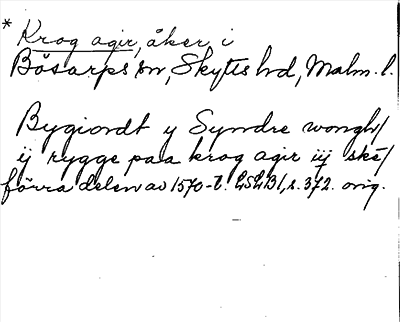 * Krog agir, åker i
Bösarps sn, Skytts hrd, Malm. l.
Bygiordt y Syndre wongh/
ij rygge paa krog agir iij ske/
förra delen av 1570-t. LSLB1, s. 372. orig.